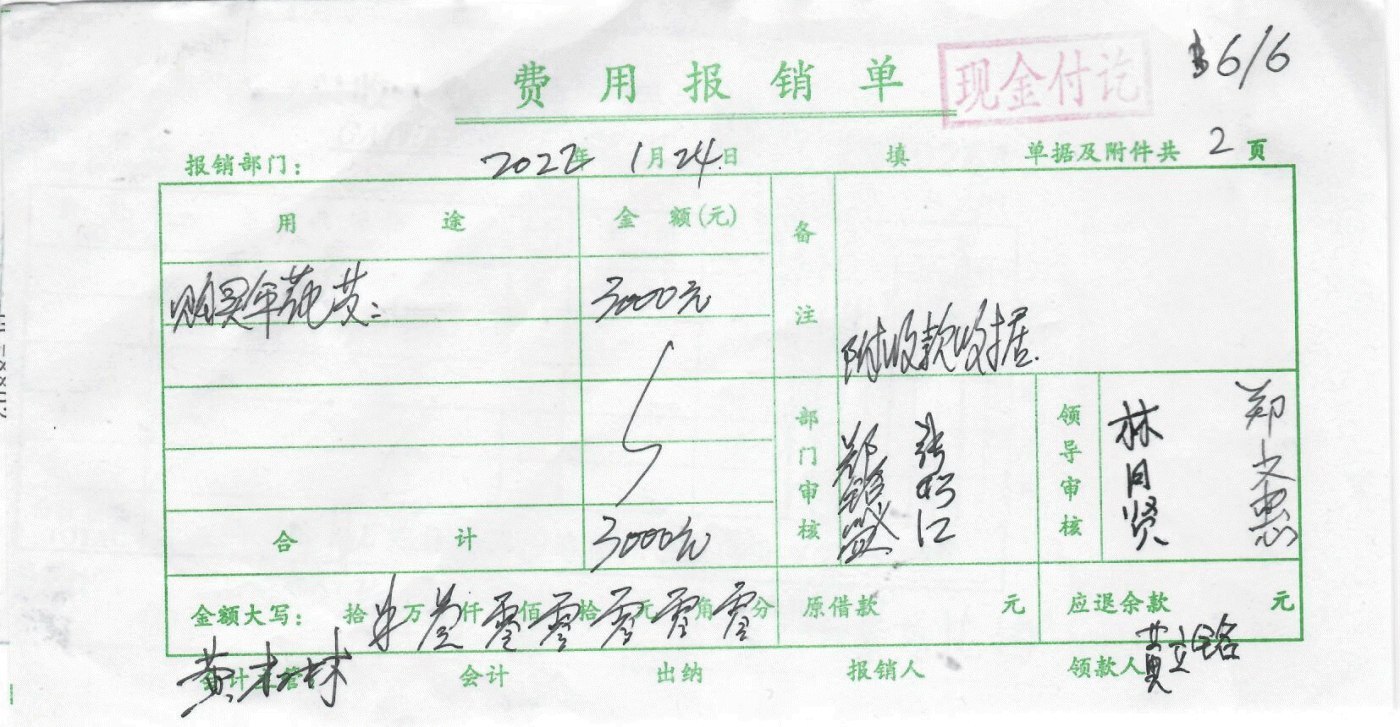 费用报销单 现金付讫 6/6
报销部门： 2022年 1月24日 填 单据及附件共 2 页
用途 金额(元) 备注
购买年花费： 3000元
附收款收据.
部门审核 郑 张 江 领导审核 林同贤 郑文惠
合计 3000元
金额大写： 拾 万 叁仟 零佰 零拾 零元 零角 零分 原借款 元 应退余款 元
会计主管 会计 出纳 报销人 领款人 黄